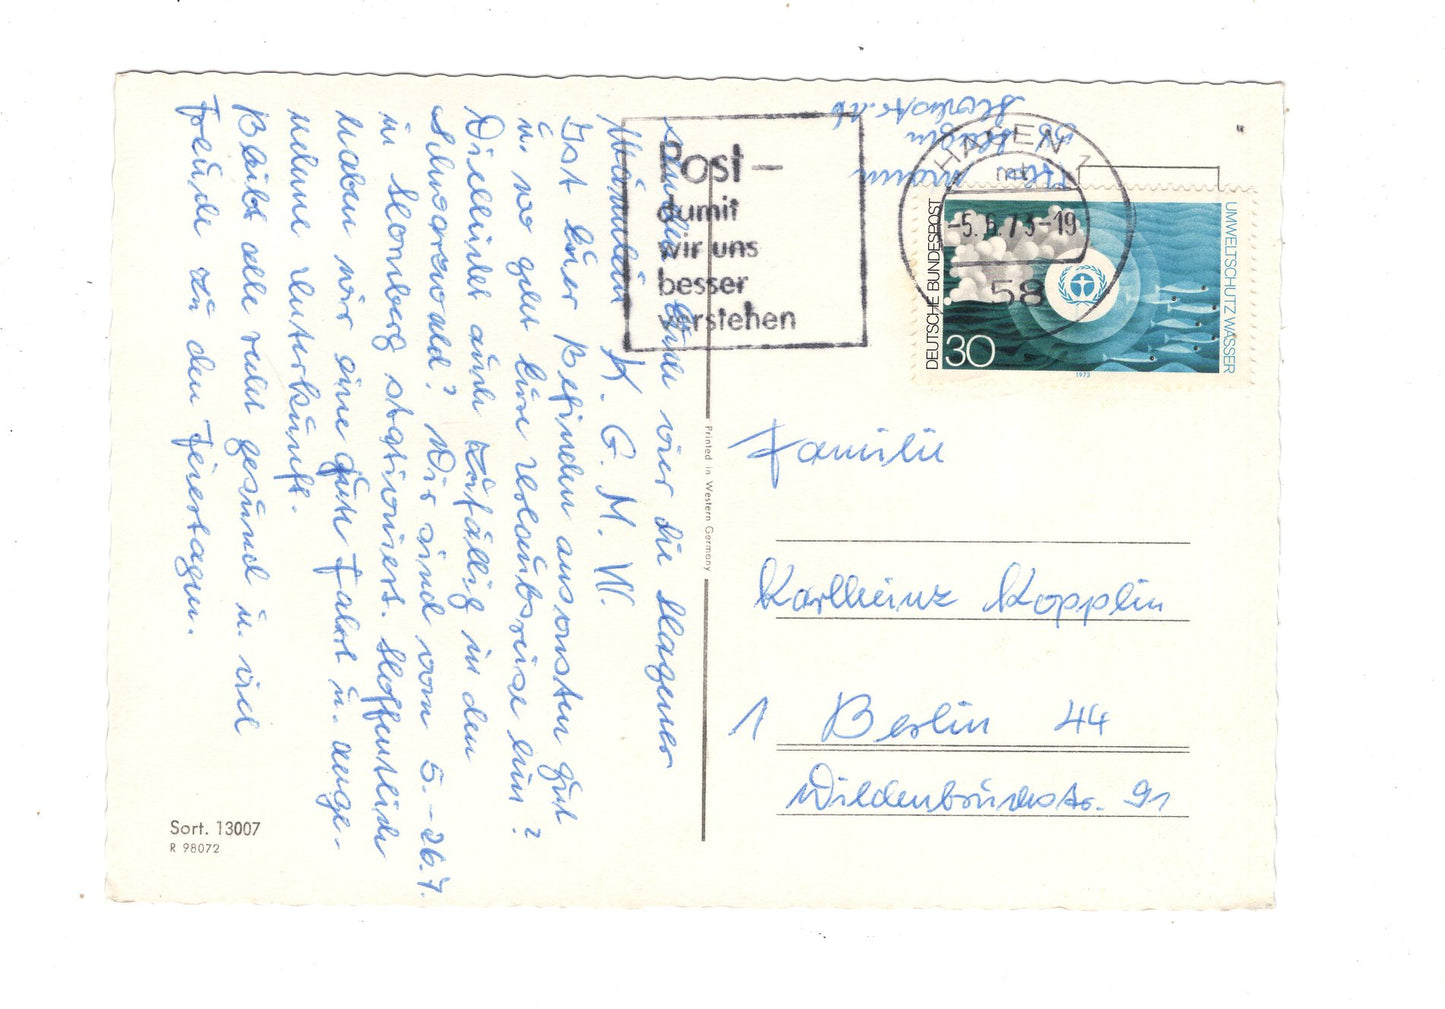 Euch vier die Hagener
K. G. M. W.
Ist Euer Befinden ansonsten gut
u. wo geht Eure Urlaubsreise hin?
Vielleicht auch zufällig in den
Schwarzwald? Wir sind vom 5.-26.7.
in Hornberg stationiert. Hoffentlich
haben wir eine gute Fahrt u. ange-
nehme Unterkunft.
Bleibt alle recht gesund u. viel
Freude zu den Feiertagen.
Sort. 13007
R 98072
Printed in Western Germany
Post –
damit
wir uns
besser
verstehen
58 Hagen
HAGEN 1
-5.6.73-19
58
DEUTSCHE BUNDESPOST
30
UMWELTSCHUTZ WASSER
1973
Familie
Karlheinz Kopplin
1 Berlin 44
Wildenbruchstr. 91